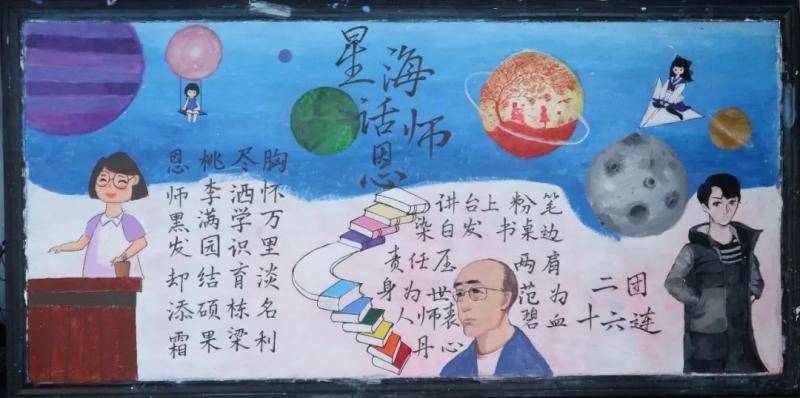 星海
话师
恩
胸怀万里淡名利
尽洒学识育栋梁
桃李满园结硕果
恩师黑发却添霜
讲台上 粉笔
染白发 书桌边
责任压 两肩
身为世 范为
人师表 碧血
丹心
二团
十六连